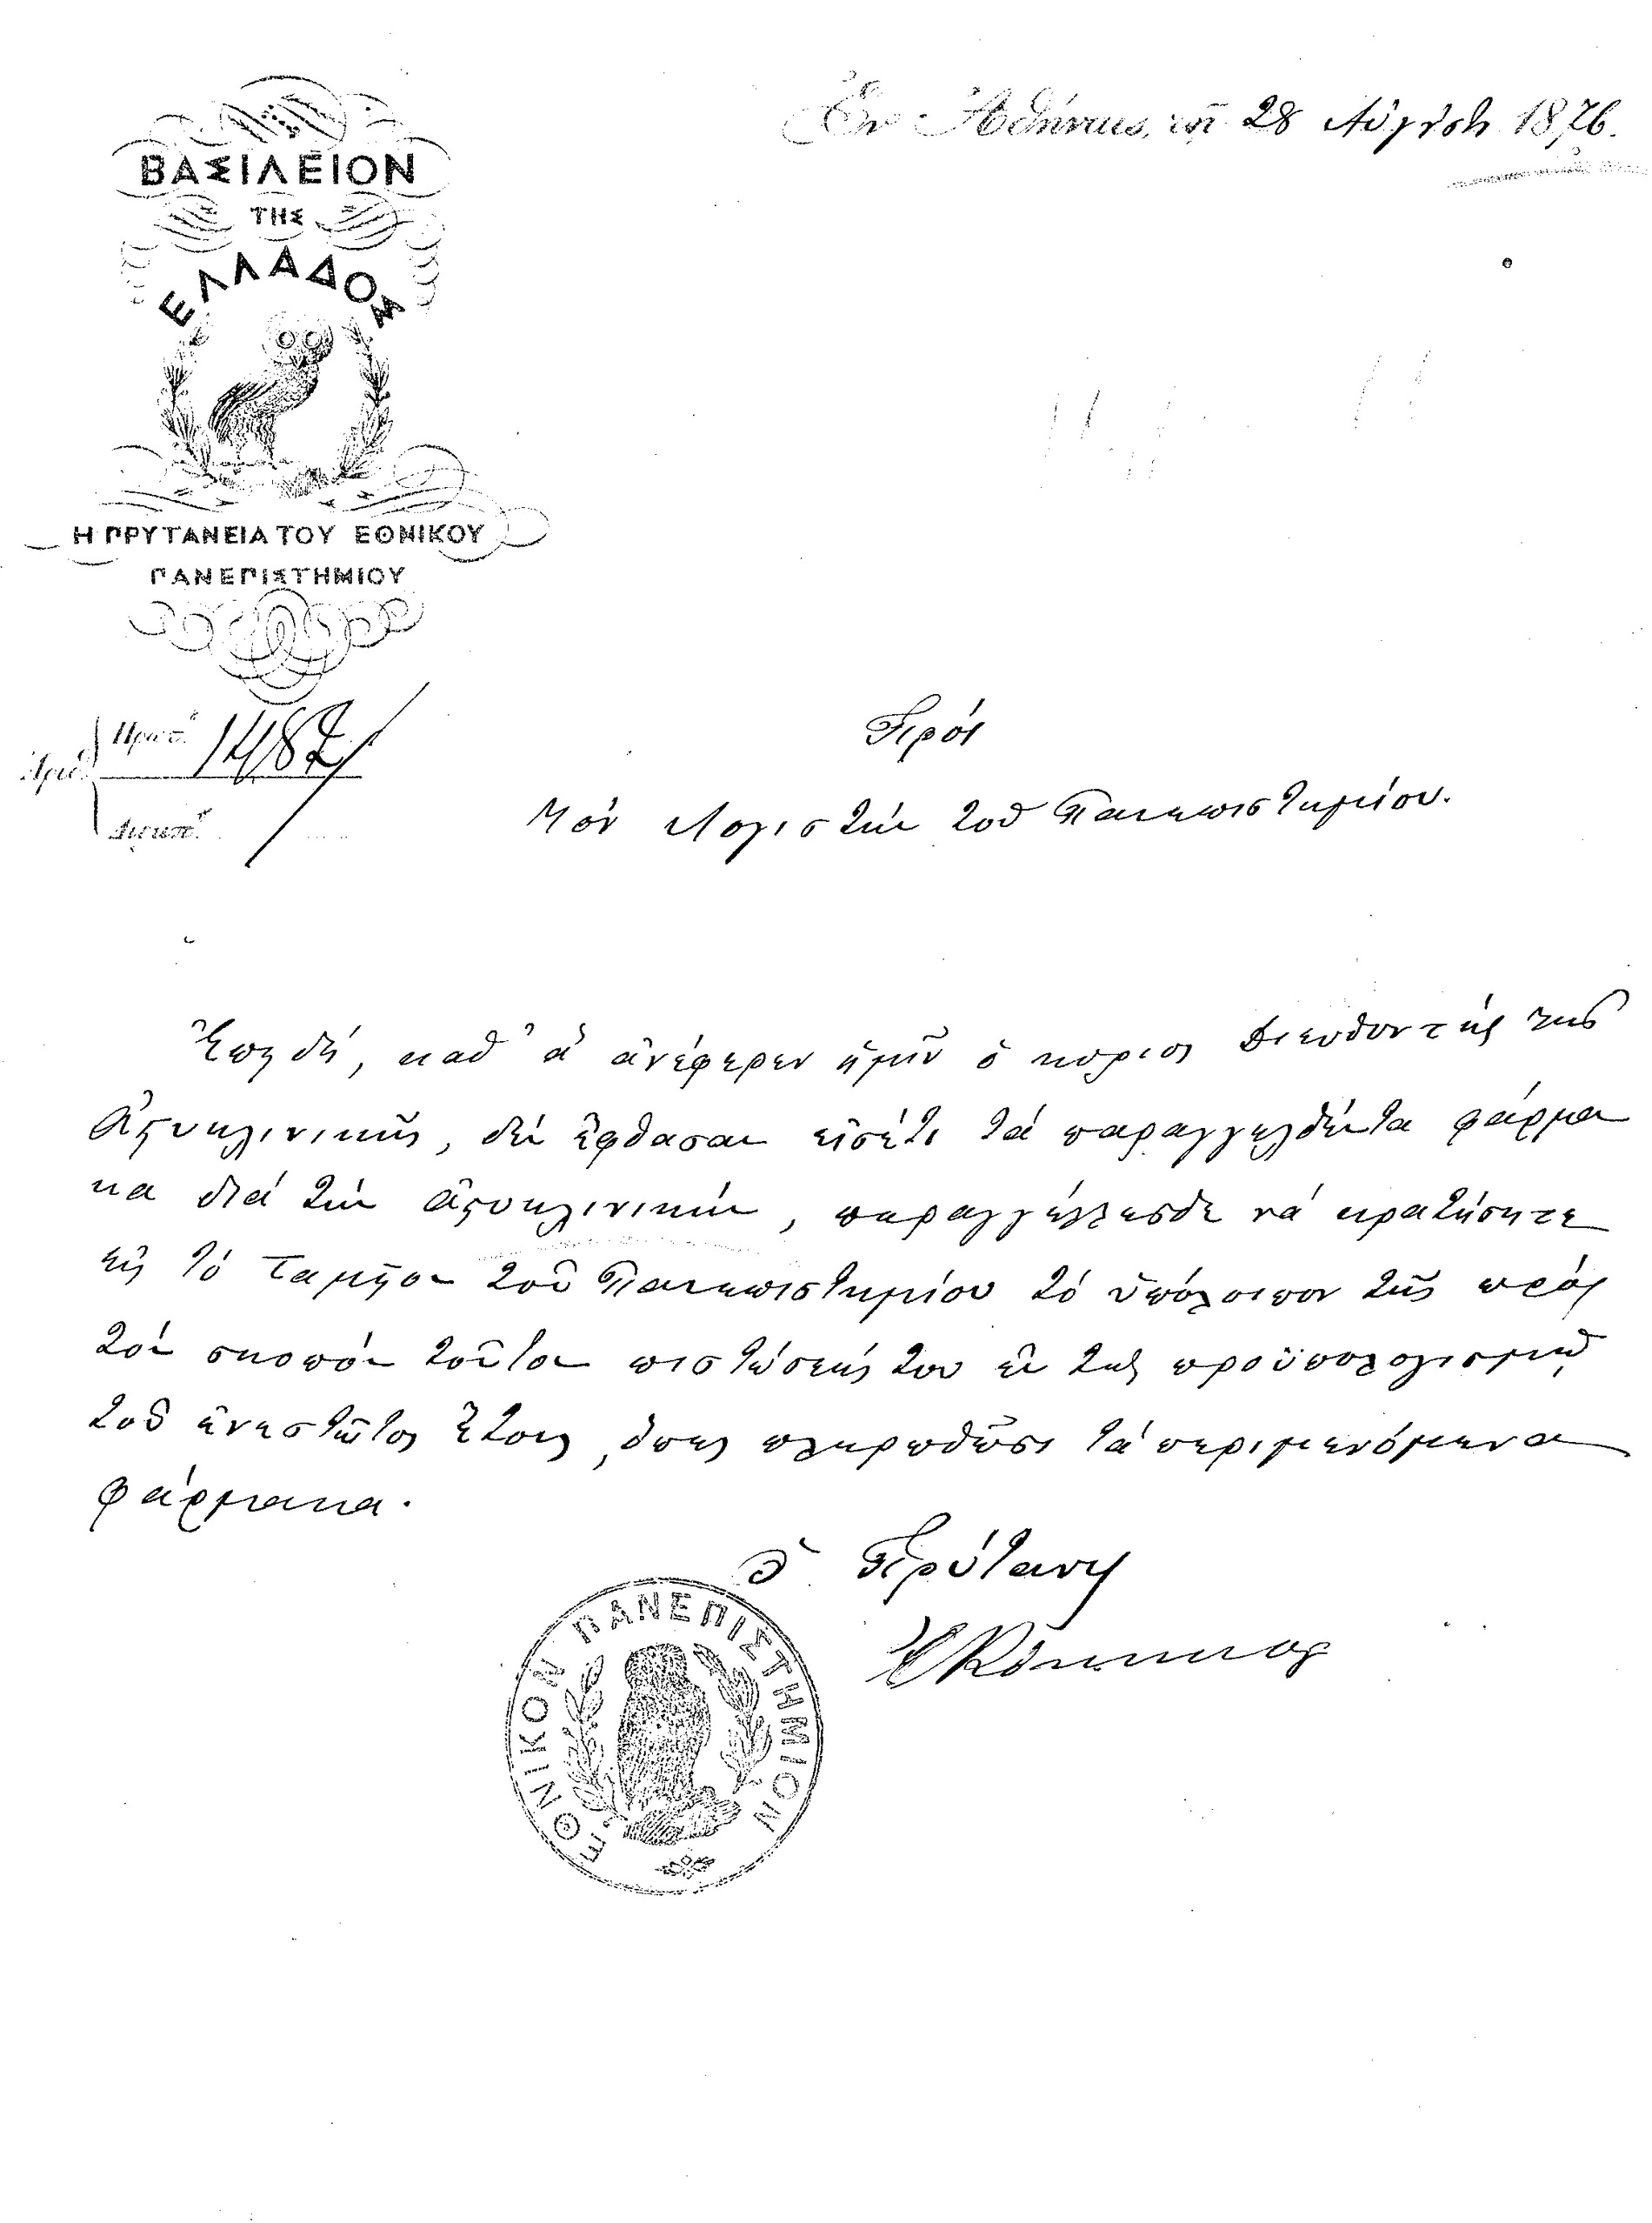 Ἐν Ἀθήναις, τῇ 28 Αὐγούστου 1876.
ΒΑΣΙΛΕΙΟΝ
ΤΗΣ
ΕΛΛΑΔΟΣ
Η ΠΡΥΤΑΝΕΙΑ ΤΟΥ ΕΘΝΙΚΟΥ
ΠΑΝΕΠΙΣΤΗΜΙΟΥ
Ἀριθ. Πρωτ. 1487
Διεκπ.
Πρὸς
Τὸν Λογιστὴν τοῦ Πανεπιστημίου.
Ἐπειδή, καθ' ἃ ἀνέφερεν ἡμῖν ὁ κύριος Διευθυντὴς τῆς
Ἀστυκλινικῆς, δὲν ἔφθασαν εἰσέτι τὰ παραγγελθέντα φάρμα
κα διὰ τὴν ἀστυκλινικήν, παραγγέλλεσθε νὰ κρατήσητε
εἰς τὸ ταμεῖον τοῦ Πανεπιστημίου τὸ ὑπόλοιπον τῆς πρὸς
τὸν σκοπὸν τοῦτον πιστώσεώς του ἐκ τοῦ προϋπολογισμοῦ
τοῦ ἐνεστῶτος ἔτους, ὅπως πληρωθῶσι τὰ περιμενόμενα
φάρμακα.
Ὁ Πρύτανις
Κόκκινος
ΕΘΝΙΚΟΝ ΠΑΝΕΠΙΣΤΗΜΙΟΝ